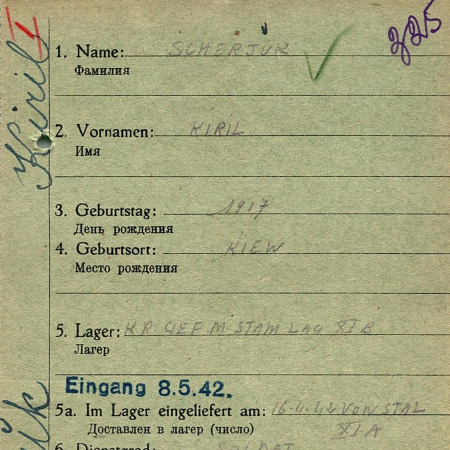 I
225
Kiril
1. Name: SCHERJUK
Фамилия
2. Vornamen: KIRIL
Имя
3. Geburtstag: 1917
День рождения
4. Geburtsort: KIEW
Место рождения
5. Lager: KR. GEF. M. STAMLAG XI B
Лагер
Eingang 8.5.42.
5a. Im Lager eingeliefert am: 16.4.42 VON STAL
Доставлен в лагер (число) XI A
6. Dienstgrad: SOLDAT